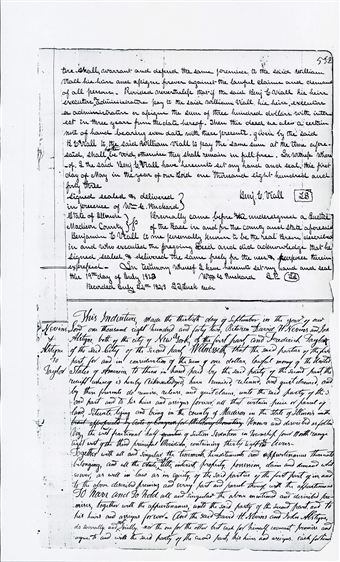 532
tors shall warrant and defend the same premises to the said William
Viall his heirs and assigns forever against the lawful claims and demands
of all persons. Provided nevertheless that if the said Benj C Viall his heirs
executors administrators pay to the said William Viall his heirs, executors
or administrators or assigns the sum of three hundred dollars with inter
est in three years from the date hereof. Then this deed as also a certain
note of hand bearing even date with these presents, given by the said
B C Viall to the said William Viall to pay the same sum at the time afore
said, shall be void, otherwise they shall remain in full force. In witness where
of, I the said Benj C Viall have hereunto set my hand and seal, this first
day of May in the year of our Lord one thousand eight hundred and
forty three
Signed sealed & delivered Benj. C. Viall
in presence of
State of Illinois
Madison County Personally came before the undersigned a Justice
of the Peace in and for the county and State aforesaid
Benjamin C Viall to me personally known to be the real person described
in and who executed the foregoing Deed and did acknowledge that he
signed sealed & delivered the same freely for the uses & purposes therein
expressed. In Testimony whereof I have hereunto set my hand and seal
the 19th day of July 1843
Recorded July 24th 1843
This Indenture, made the thirtieth day of September in the year of our
Lord one thousand eight hundred and forty Between
both of the city of New York, of the first part, and Frederick Taylor
of the said City of the second part Witnesseth, that the said parties of the first
part for and in consideration of the sum of one dollar lawful money of the United
States of America to them in hand paid by the said party of the second part the
receipt whereof is hereby acknowledged have remised, released, and quit claimed, and
by these presents do remise, release, and quit claim unto the said party of the
second part and to his heirs and assigns forever all that certain piece or parcel of
land Situate lying and being in the county of Madison in the State of Illinois
Together with all and singular the tenements, hereditaments and appurtenances thereunto
belonging, and all the estate, title, interest, property possession, claim and demand what
soever as well in law as in equity of the said parties of the first part of in and
to the above described premises and every part and parcel thereof with the appurtenances
To have and to hold all and singular the above mentioned and described pre-
mises, together with the appurtenances, unto the said party of the second part and to
his heirs and assigns forever. And the said
do severally and jointly, not the one for the other but each for himself covenant promise and
agree to and with the said party of the second part his heirs and assigns